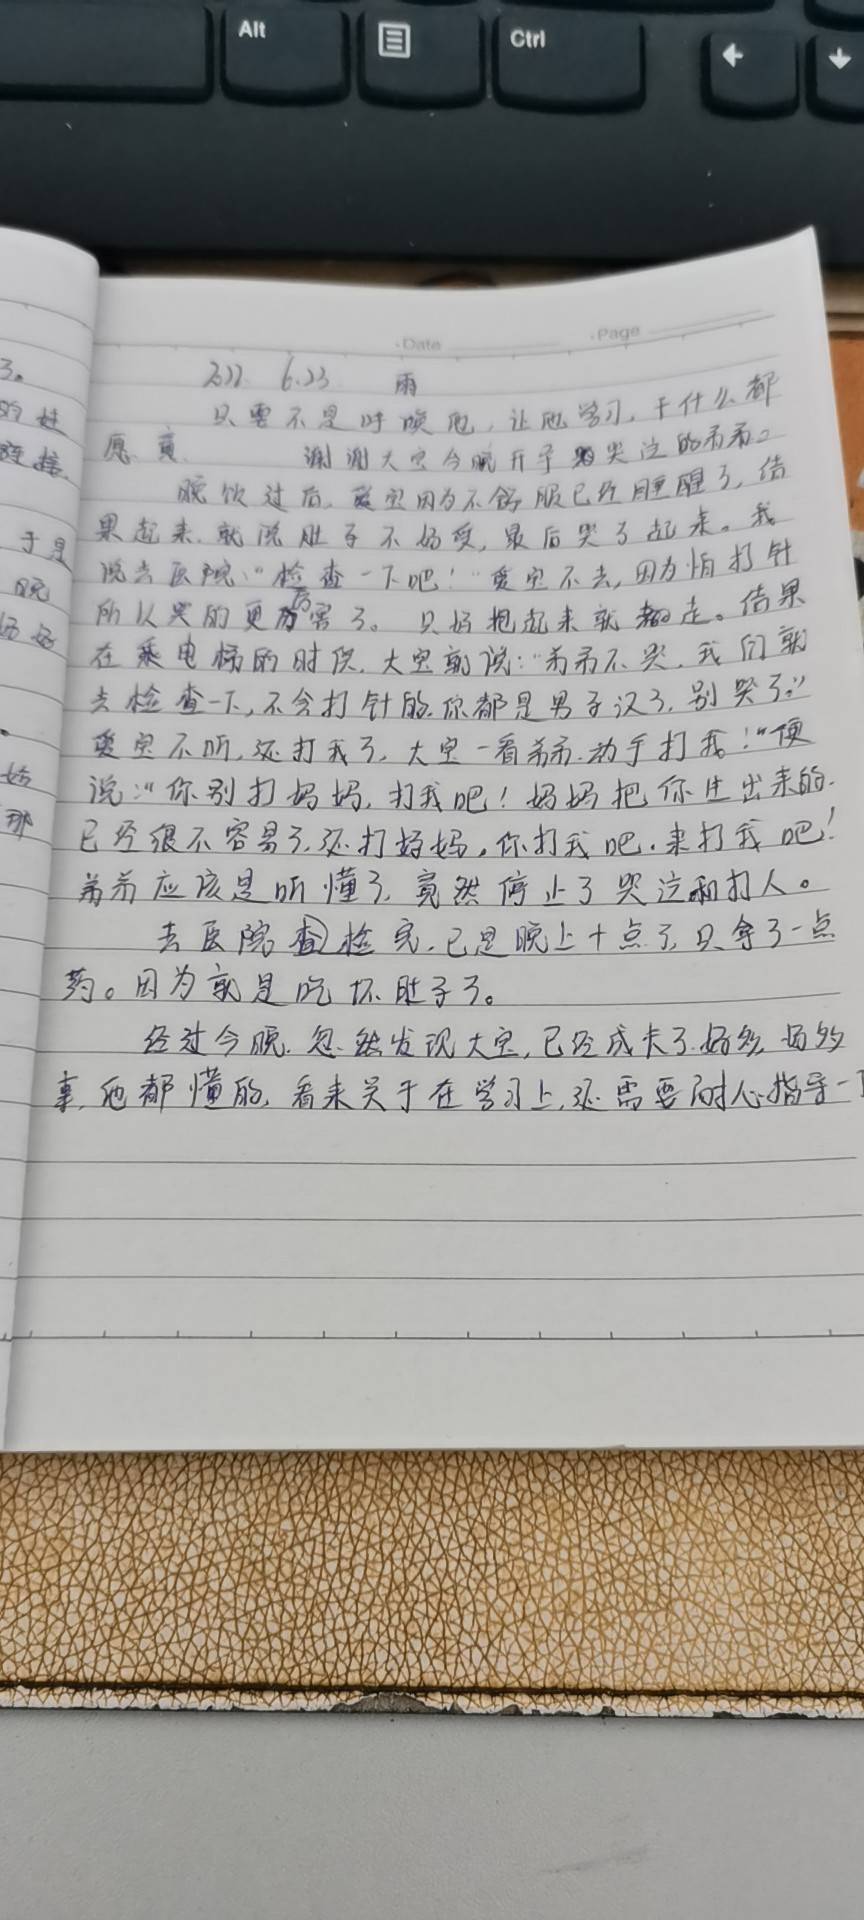 Alt
Ctrl
Date
Page
了。
于是
晚
那
2022 6.23 雨
只要不是时唤他，让他学习，干什么都
愿意 谢谢大宝今晚开导哭泣的弟弟。
晚饮过后，爱宝因为不舒服已经睡醒了，结
果起来，就说肚子不好受，最后哭了起来。我
说去医院：“检查一下吧！”爱宝不去，因为怕打针
所以哭的更厉害了。只好抱起来就走。结果
在乘电梯的时侯，大宝就说：“弟弟不哭，我们就
去检查一下，不会打针的，你都是男子汉了，别哭了。”
爱宝不听，还打我了，大宝一看弟弟，动手打我！”便
说：“你别打妈妈，打我吧！妈妈把你生出来的，
已经很不容易了，还打妈妈，你打我吧，来打我吧！
弟弟应该是听懂了，竟然停止了哭泣和打人。
去医院查检完，已是晚上十点了，只拿了一点
药。因为就是吃坏肚子了。
经过今晚，忽然发现大宝，已经成长了好多，好多
事，他都懂的，看来关于在学习上，还需要耐心指导一下